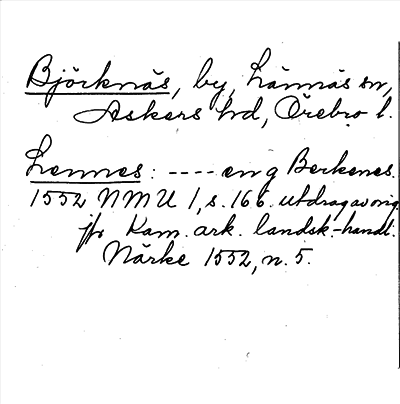 Björknäs, by, Lännäs sn,
Askers hd, Örebro l.
Lennes: ---- en g Berkenes.
1552 NMU 1, s. 166. utdrag av orig.
fr Kam. ark. landsk.-handl.
Närke 1552, n. 5.